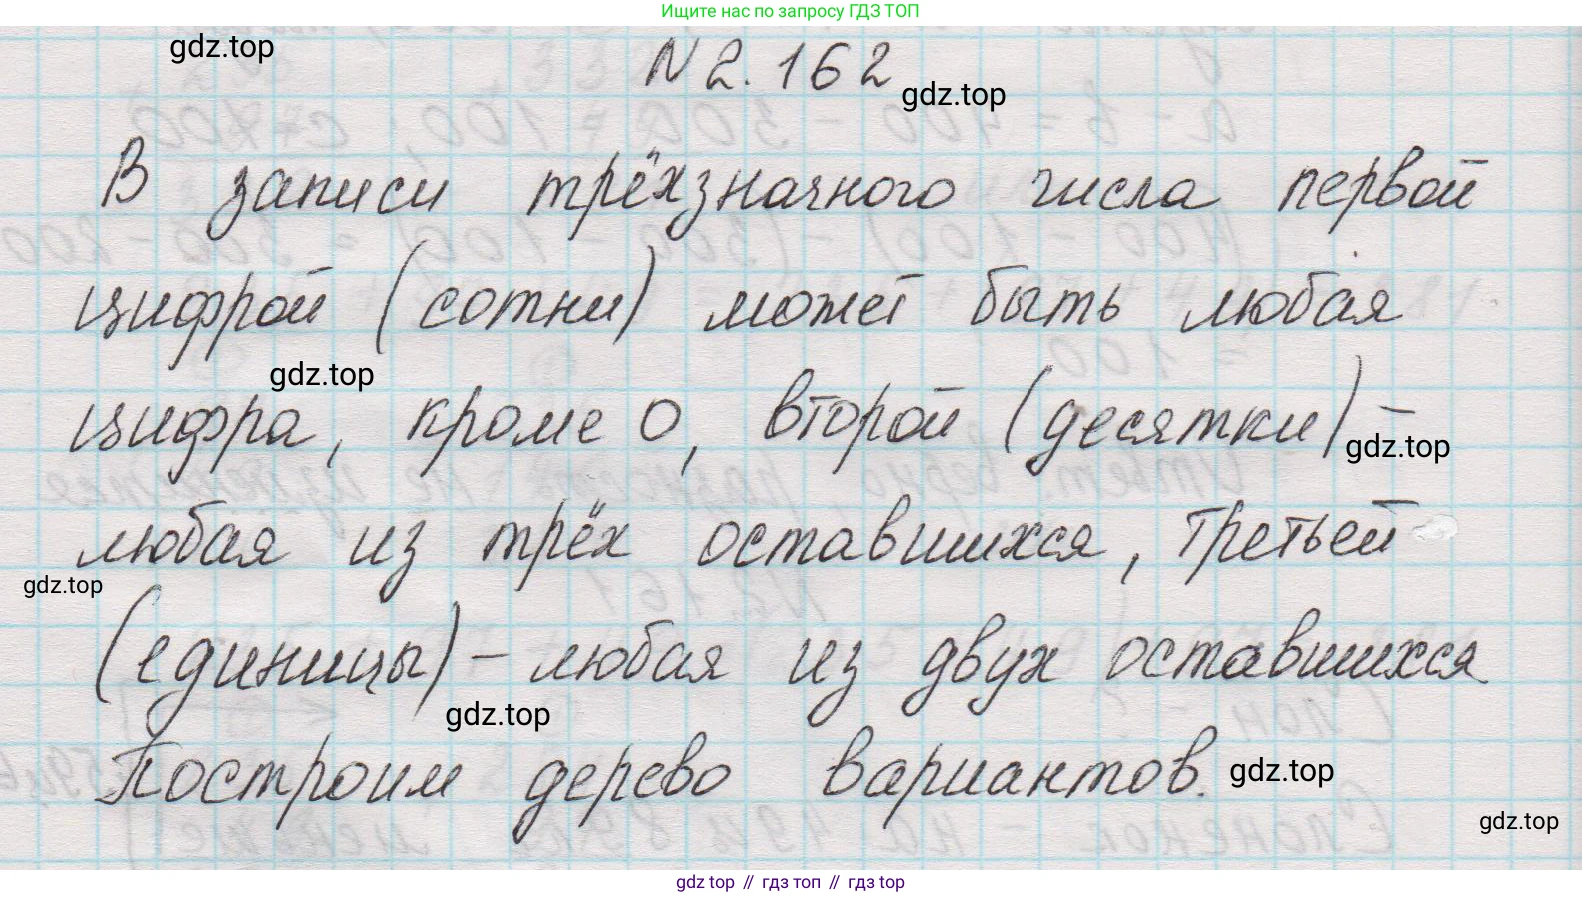 Ищите нас по запросу ГДЗ ТОП
gdz.top
N 2.162
gdz.top
В записи трёхзначного числа первой
цифрой (сотни) может быть любая
gdz.top
цифра, кроме 0, второй (десятки) –
gdz.top
любая из трёх оставшихся, третьей
gdz.top
(единицы) – любая из двух оставшихся
gdz.top
Построим дерево вариантов.
gdz.top
gdz.top
gdz top // гдз топ // гдз top